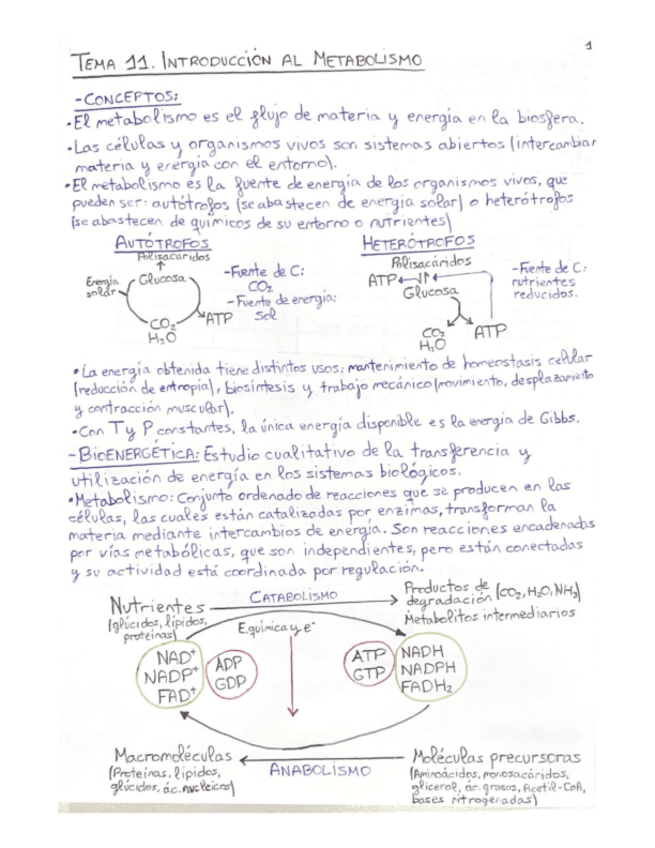 1
TEMA 11. INTRODUCCIÓN AL METABOLISMO
-CONCEPTOS:
•El metabolismo es el flujo de materia y energía en la biosfera.
•Las células y organismos vivos son sistemas abiertos (intercambiar
materia y energía con el entorno).
•El metabolismo es la fuente de energía de los organismos vivos, que
pueden ser: autótrofos (se abastecen de energía solar) o heterótrofos
(se abastecen de químicos de su entorno o nutrientes)
AUTÓTROFOS
Polisacáridos
Energía
solar
Glucosa
CO₂
H₂O
ATP
-Fuente de C:
CO₂
-Fuente de energía:
sol
HETERÓTROFOS
Polisacáridos
ATP
Glucosa
CO₂
H₂O
ATP
-Fuente de C:
nutrientes
reducidos.
•La energía obtenida tiene distintos usos: mantenimiento de homeostasis celular
(reducción de entropía), biosíntesis y trabajo mecánico (movimiento, desplazamiento
y contracción muscular).
•Con T y P constantes, la única energía disponible es la energía de Gibbs.
-BIOENERGÉTICA: Estudio cualitativo de la transferencia y
utilización de energía en los sistemas biológicos.
•Metabolismo: Conjunto ordenado de reacciones que se producen en las
células, las cuales están catalizadas por enzimas, transforman la
materia mediante intercambios de energía. Son reacciones encadenadas
por vías metabólicas, que son independientes, pero están conectadas
y su actividad está coordinada por regulación.
Nutrientes
(glúcidos, lípidos,
proteínas)
CATABOLISMO
Productos de
degradación (CO₂, H₂O, NH₃)
Metabolitos intermediarios
E.química y e⁻
NAD⁺
NADP⁺
FAD⁺
ADP
GDP
ATP
GTP
NADH
NADPH
FADH₂
Macromoléculas
(Proteínas, lípidos,
glúcidos, ác. nucleicos)
ANABOLISMO
Moléculas precursoras
(Aminoácidos, monosacáridos,
glicerol, ác. grasos, Acetil-CoA,
bases nitrogenadas)